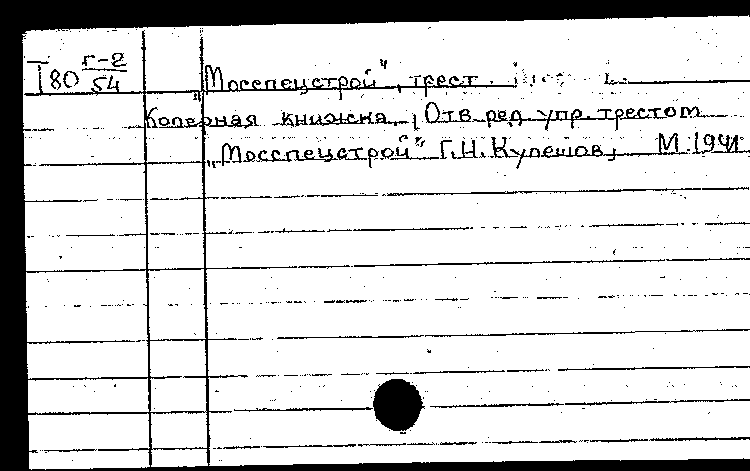 Т80 г-2/54 „Мосспецстрой", трест.
Колерная книжка, Отв. ред. упр. трестом
„Мосспецстрой" Г.И. Кулешов, М. 1941